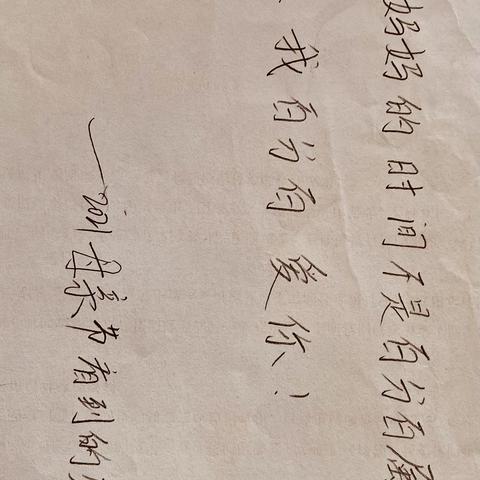 妈妈的时间不是百分百属
我百分百爱你！
——2021母亲节看到的